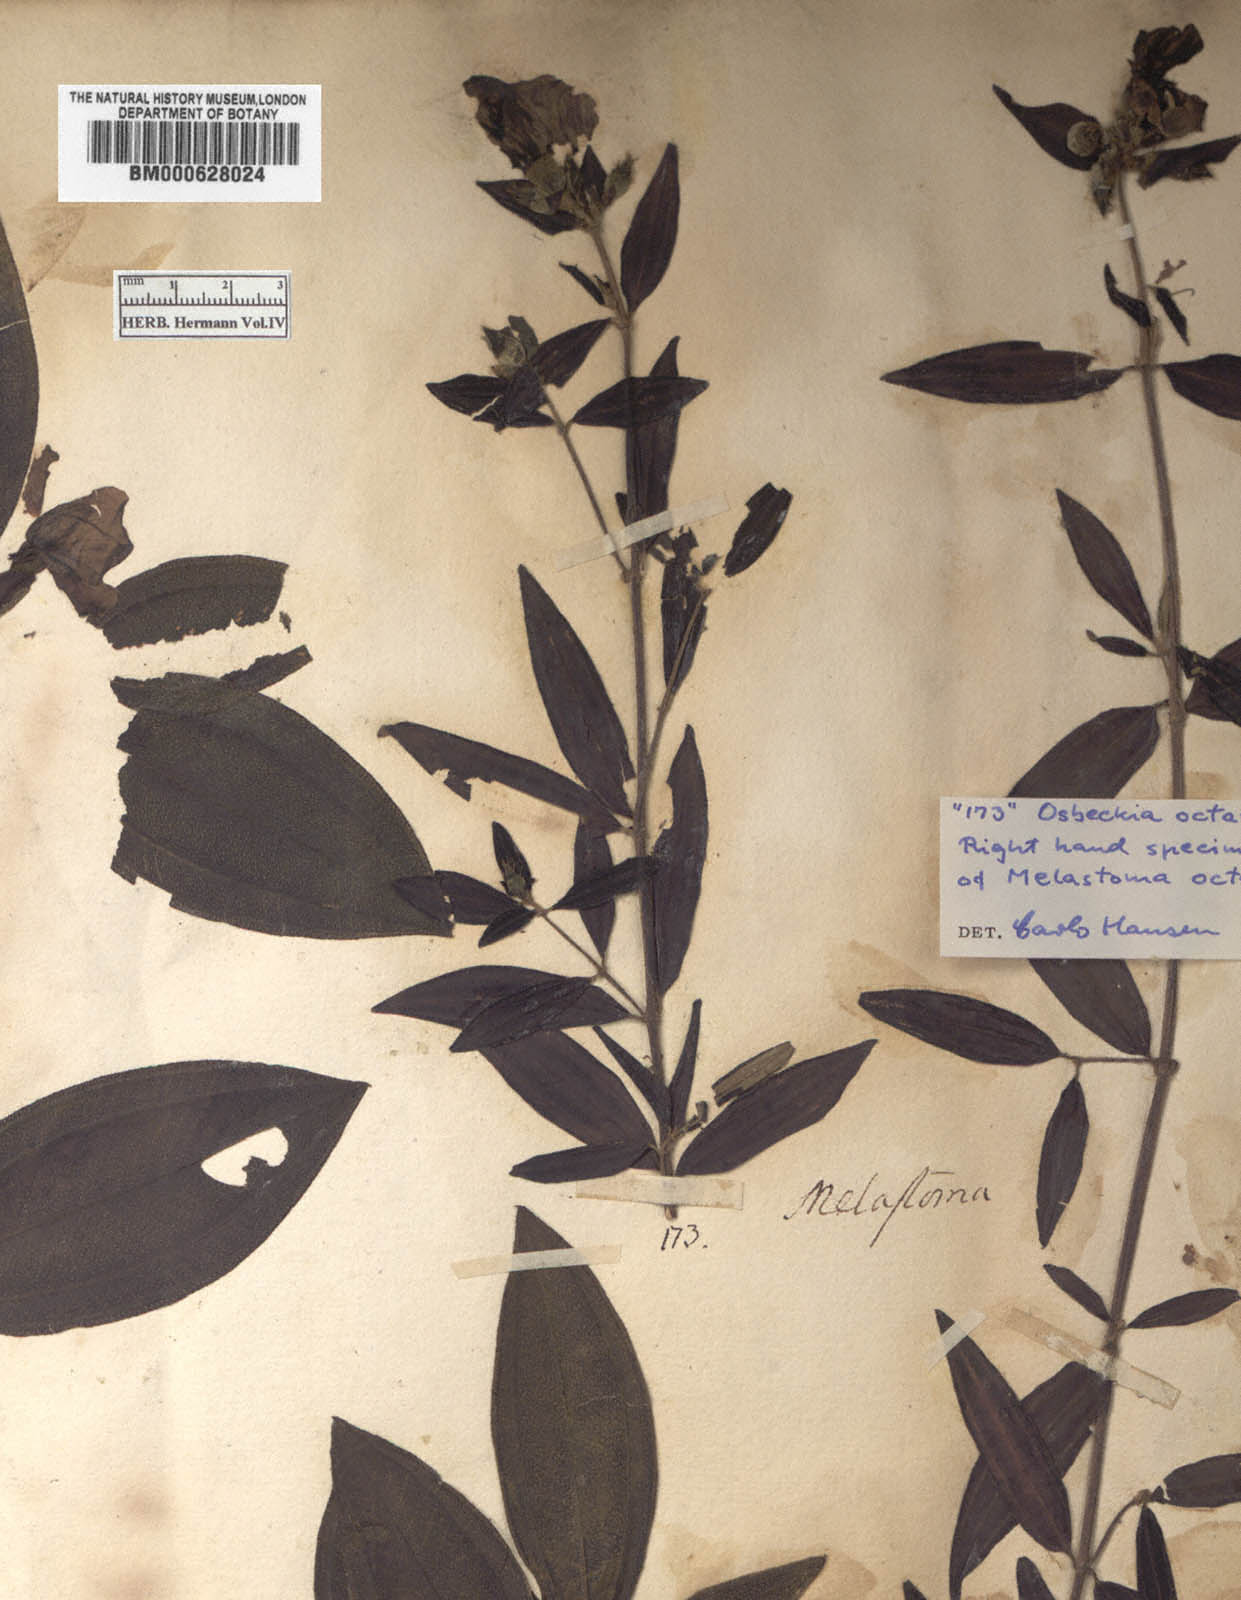 THE NATURAL HISTORY MUSEUM, LONDON
DEPARTMENT OF BOTANY
BM000628024
mm 1 2 3
HERB. Hermann Vol.IV
"173" Osbeckia octa
Right hand specim
of Melastoma oct
DET. Carlo Hansen
Melastoma
173.